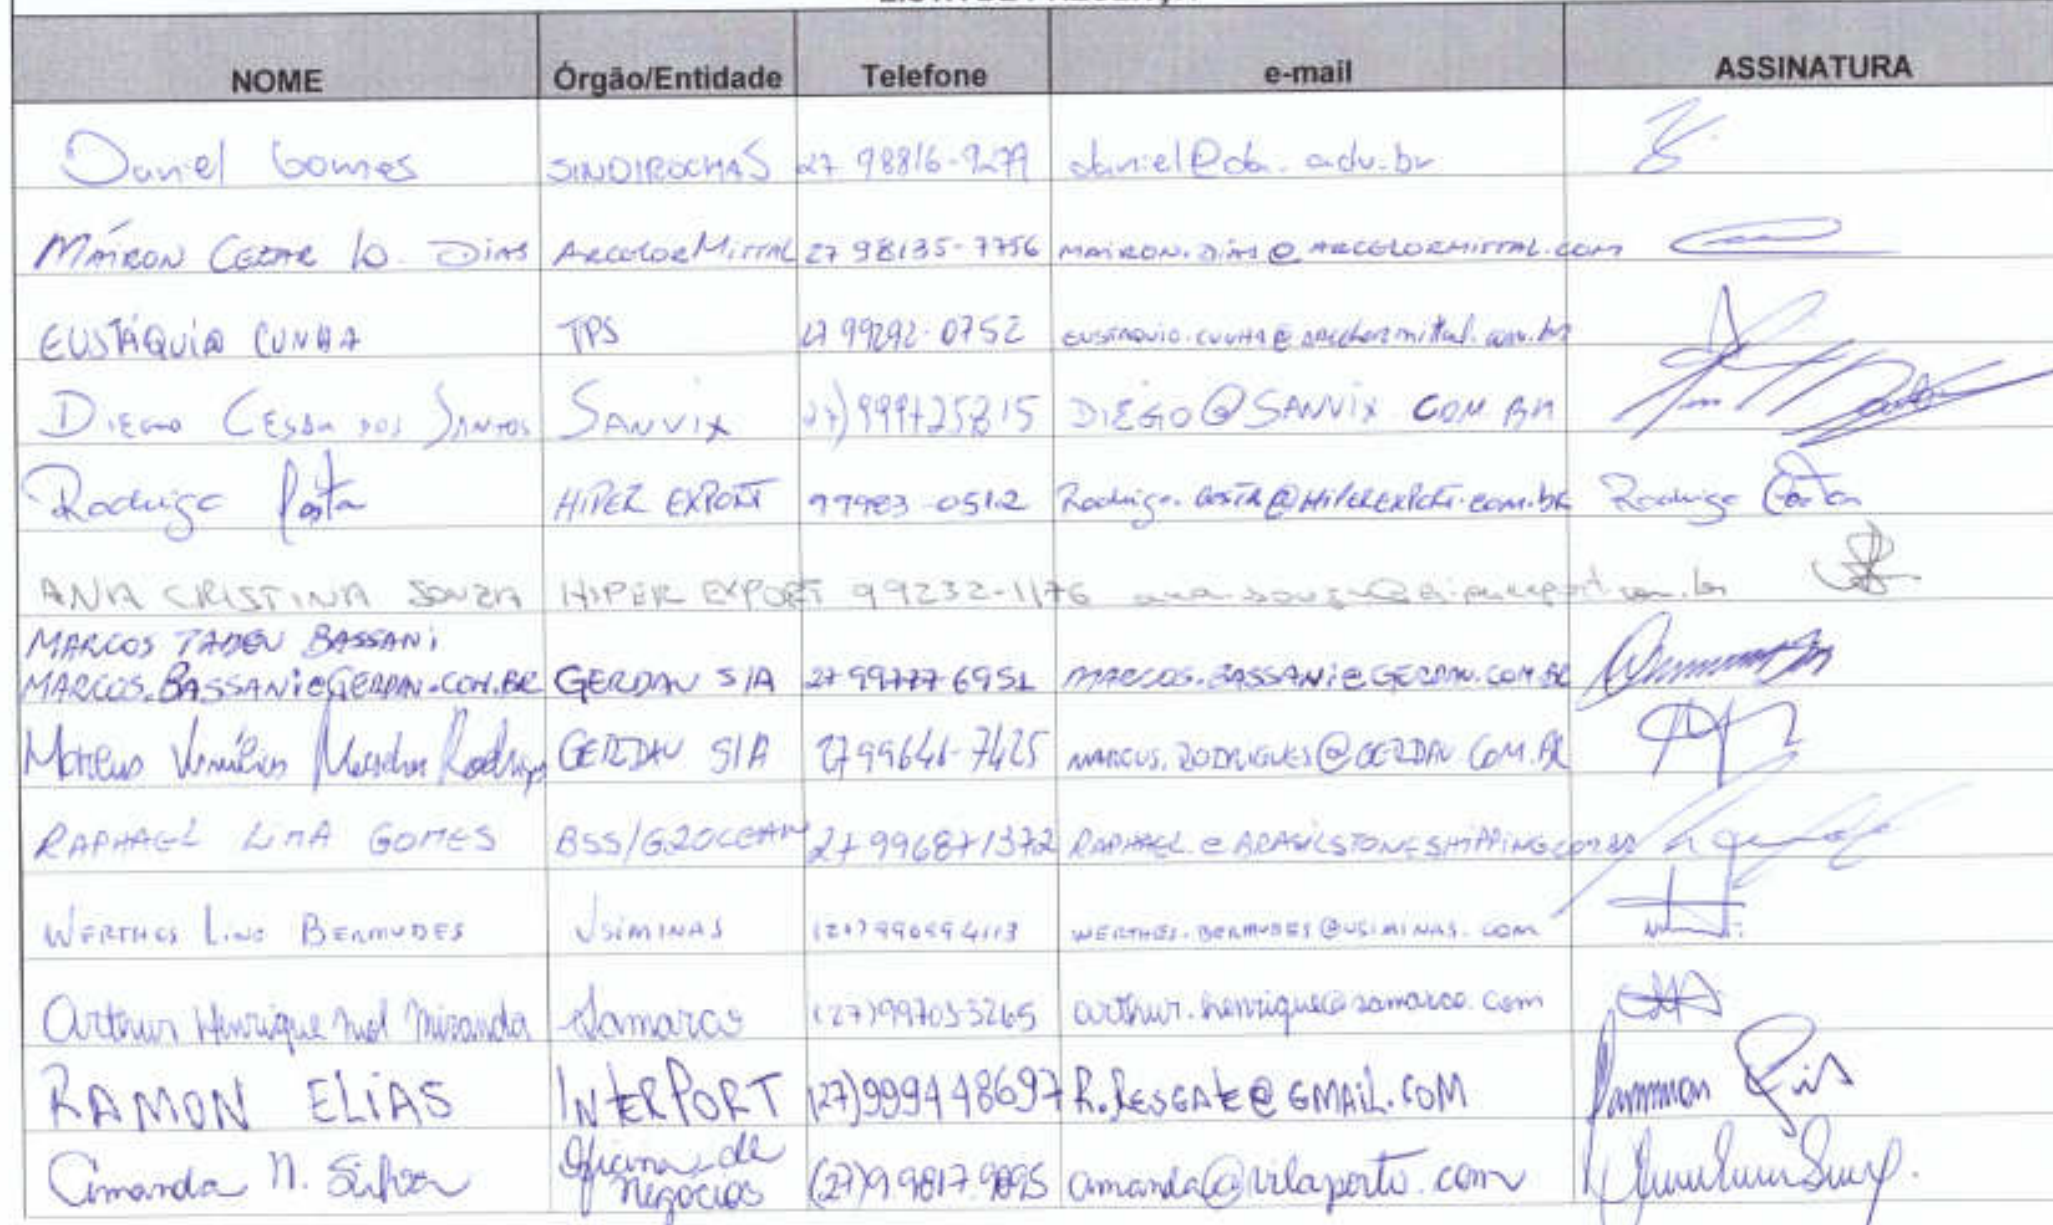 NOME Órgão/Entidade Telefone e-mail ASSINATURA
Daniel Gomes SINDIROCHAS 27 98816-9279 daniel@da.adv.br
MAIRON CEZAR DIAS ARCELORMITTAL 27 98135-7756 MAIRON.DIAS@ARCELORMITTAL.COM
EUSTÁQUIO CUNHA TPS 27 99292-0752 EUSTAQUIO.CUNHA@arcelormittal.com.br
DIEGO CESAR DOS SANTOS SANVIX 27)999725815 DIEGO@SANVIX.COM.BR
Rodrigo Costa HIPER EXPORT 99983-0512 Rodrigo.COSTA@HIPEREXPORT.com.br Rodrigo Costa
ANA CRISTINA SOUZA HIPER EXPORT 99232-1176 ana.souza@hiperexport.com.br
MARCOS TADEU BASSANI
MARCOS.BASSANI@GERDAU.COM.BR GERDAU S/A 27 99777 6951 MARCOS.BASSANI@GERDAU.COM.BR
GERDAU S/A 27 99641-7425 MARCUS.RODRIGUES@GERDAU.COM.BR
RAPHAEL LIMA GOMES BSS/G2OCEAN 27 996871372 RAPHAEL@BRASILSTONESHIPPING.COM.BR
WERTHES LINO BERMUDES USIMINAS WERTHES.BERMUDES@USIMINAS.COM
Arthur Henrique Miranda Samarco (27)997053265 arthur.henrique@samarco.com
RAMON ELIAS INTERPORT (27)999448697 R.RESGATE@GMAIL.COM
Amanda N. Silva Oficina de negócios (27)99817.9895 amanda@vilaporto.com